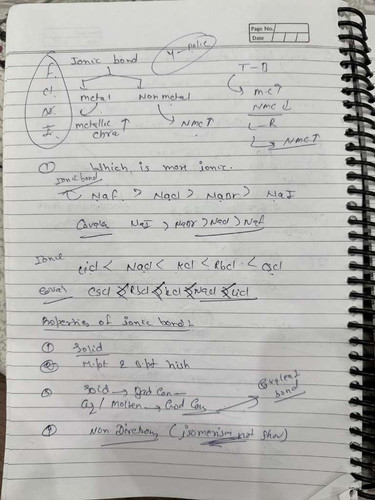 Page No.
Date
Ionic bond
T - D
metal Nonmetal
M.C↑
NMC↓
metallic chra ↑ NMC↑
L - R
NMC↑
① Which is more ionic.
Ionic bond
↑ NaF > NaCl > NaBr > NaI
NaI > NaBr > NaCl > NaF
Ionic
LiCl < NaCl < KCl < RbCl < CsCl
Coval CsCl RbCl KCl NaCl LiCl
Properties of ionic bond
① Solid
② M.pt & B.pt high
③ Solid →
aq / Molten → Good Con
bond
④ Non Direction (isomerism not show)